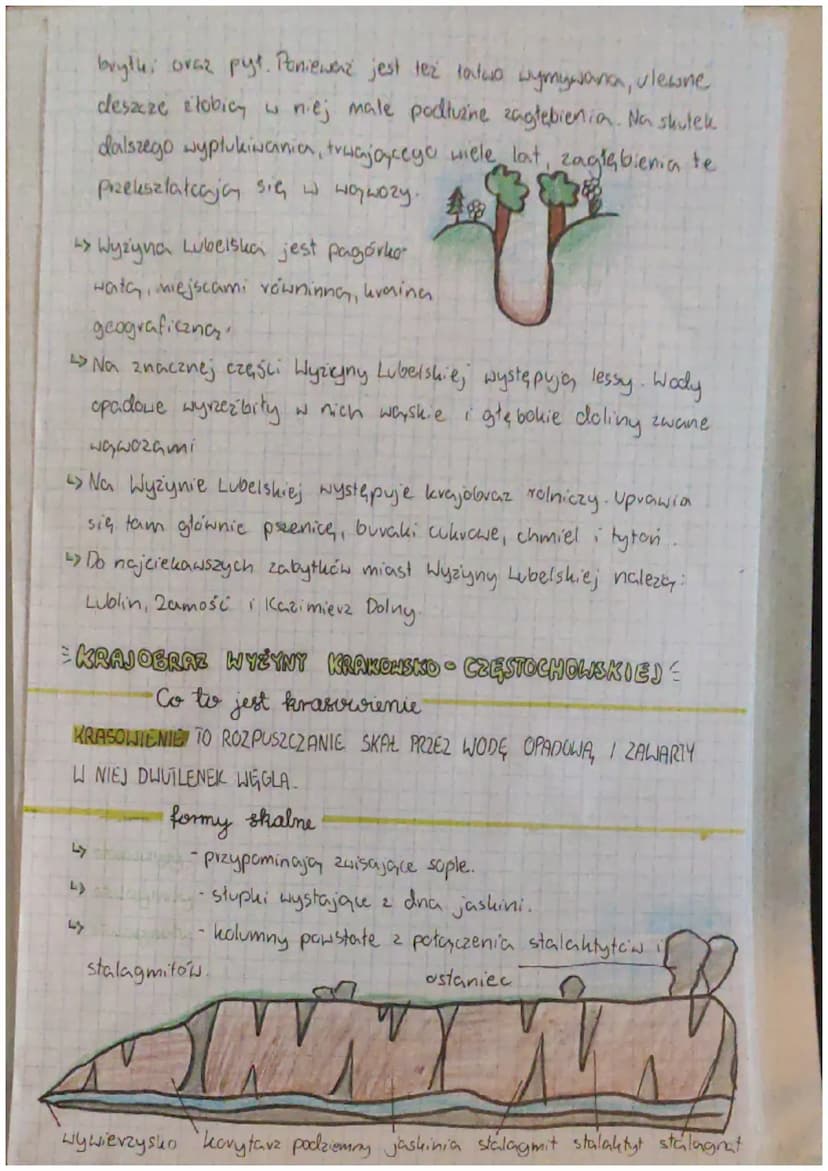 bryłki oraz pył. Ponieważ jest też łatwo wymywana, ulewne
deszcze żłobią w niej małe podłużne zagłębienia. Na skutek
dalszego wypłukiwania, trwającego wiele lat, zagłębienia te
przekształcają się w wąwozy.
↳ Wyżyna Lubelska jest pagórko-
watą, miejscami równinną, krainą
geograficzną.
↳ Na znacznej części Wyżyny Lubelskiej występują lessy. Wody
opadowe wyrzeźbiły w nich wąskie i głębokie doliny zwane
wąwozami
↳ Na Wyżynie Lubelskiej występuje krajobraz rolniczy. Uprawia
się tam głównie pszenicę, buraki cukrowe, chmiel i tytoń.
↳ Do najciekawszych zabytków miast Wyżyny Lubelskiej należą:
Lublin, Zamość i Kazimierz Dolny.
KRAJOBRAZ WYŻYNY KRAKOWSKO-CZĘSTOCHOWSKIEJ
Co to jest krasowienie
KRASOWIENIE TO ROZPUSZCZANIE SKAŁ PRZEZ WODĘ OPADOWĄ I ZAWARTY
W NIEJ DWUTLENEK WĘGLA.
formy skalne
↳ - przypominają zwisające sople.
↳ - słupki wystające z dna jaskini.
↳ - kolumny powstałe z połączenia stalaktytów i
stalagmitów.
ostaniec
wywierzysko korytarz podziemny jaskinia stalagmit stalaktyt stalagnat